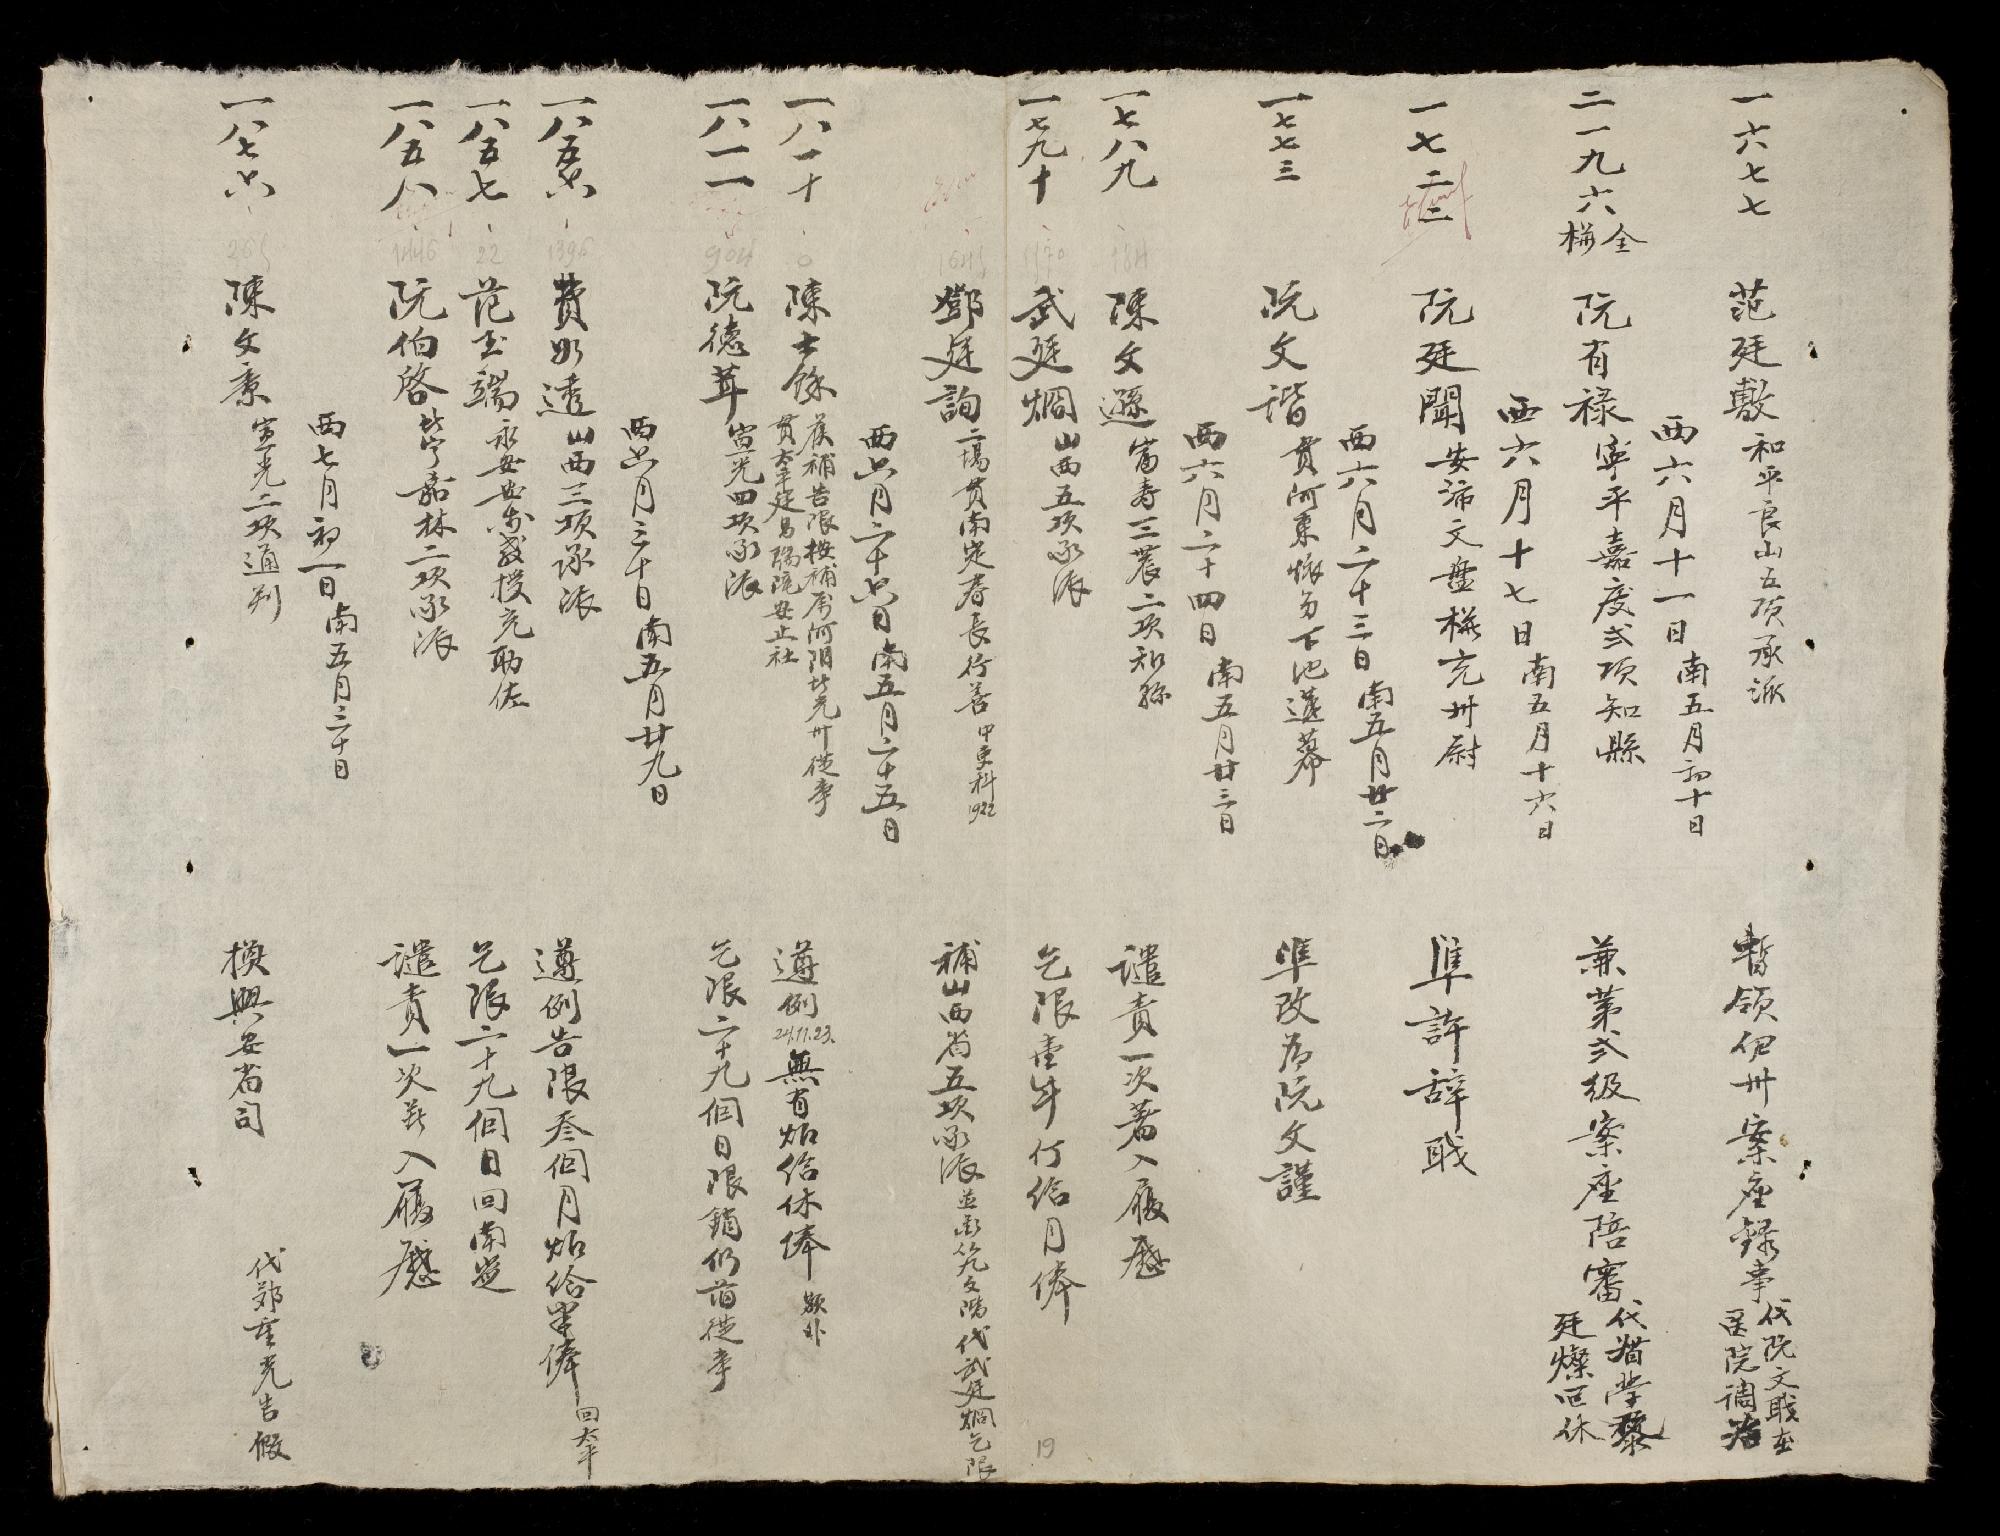 一六七七 范廷敷 和平良山五項承派 暫領伊州案座録事 代阮文職在
医院調治
西六月十一日南五月初十日
二一九六 全
栟 阮有禄 寧平嘉慶弍項知縣 兼第弍級案座陪審 代督学黎
廷燦囬休
西六月十七日南五月十六日
一七二二 阮廷聞 安沛文盤栟充州尉 準許辞職
阮文諧 貫河東 下池
一七七三 準改為阮文謹
西六月二十三日南五月廿二日
西六月二十四日南五月廿三日
一七八九 184 陳文遜 富寿三農二項知縣 譴責一次著入履歷
一七九十 1170 武廷烱 山西五項承派 乞限壹年仃給月俸
鄧廷詢 二場貫南定春長行善 中更科1922 補山西省五項承派 代武廷烱乞限
西六月二十六日南五月二十五日
一八一十 0 陳士餘 貫太平 安止社 遵例 24.11.23. 無有炤給休俸 額外
一八一一 904 阮德茸 宣光四項承派 乞限二十九個日限銷仍莅從事
西六月三十日南五月廿九日
一八五六 1396 費如透 山西三項承派 遵例告限叁個月炤給半俸 回太平
一八五七 22 范玉端 永安安 栟充助佐 乞限二十九個日回南定
一八五八 1446 阮伯啓 北寧嘉林二項承派 譴責一次著入履歷
西七月初一日南五月三十日
一八七六 265 陳文景 宣光二項通判 換興安省司 代鄧重光告假
19